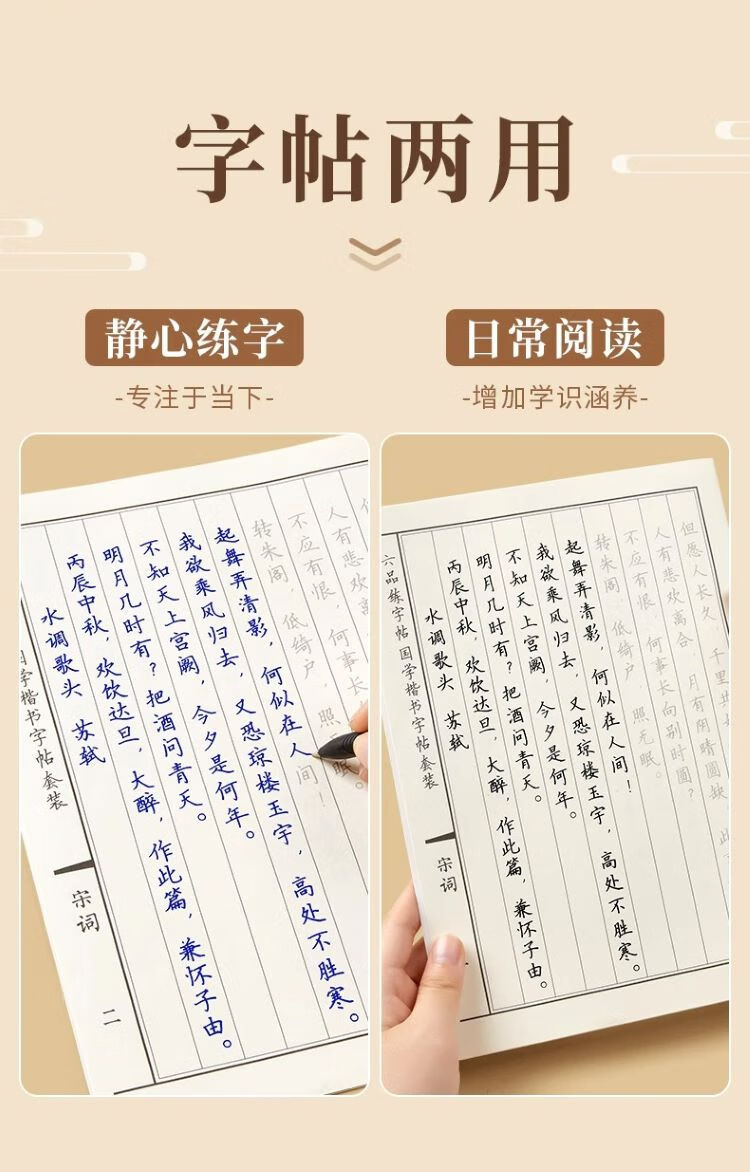 字帖两用
静心练字
-专注于当下-
国学楷书字帖套装
宋词
二
水调歌头 苏轼
丙辰中秋,欢饮达旦,大醉,作此篇,兼怀子由。
明月几时有?把酒问青天。
不知天上宫阙,今夕是何年。
我欲乘风归去,又恐琼楼玉宇,高处不胜寒。
起舞弄清影,何似在人间!
转朱阁,低绮户,照无眠。
不应有恨,何事长
人有悲欢
日常阅读
-增加学识涵养-
六品练字帖 国学楷书字帖套装
宋词
水调歌头 苏轼
丙辰中秋,欢饮达旦,大醉,作此篇,兼怀子由。
明月几时有?把酒问青天。
不知天上宫阙,今夕是何年。
我欲乘风归去,又恐琼楼玉宇,高处不胜寒。
起舞弄清影,何似在人间!
转朱阁,低绮户,照无眠。
不应有恨,何事长向别时圆?
人有悲欢离合,月有阴晴圆缺,此
但愿人长久,千里共